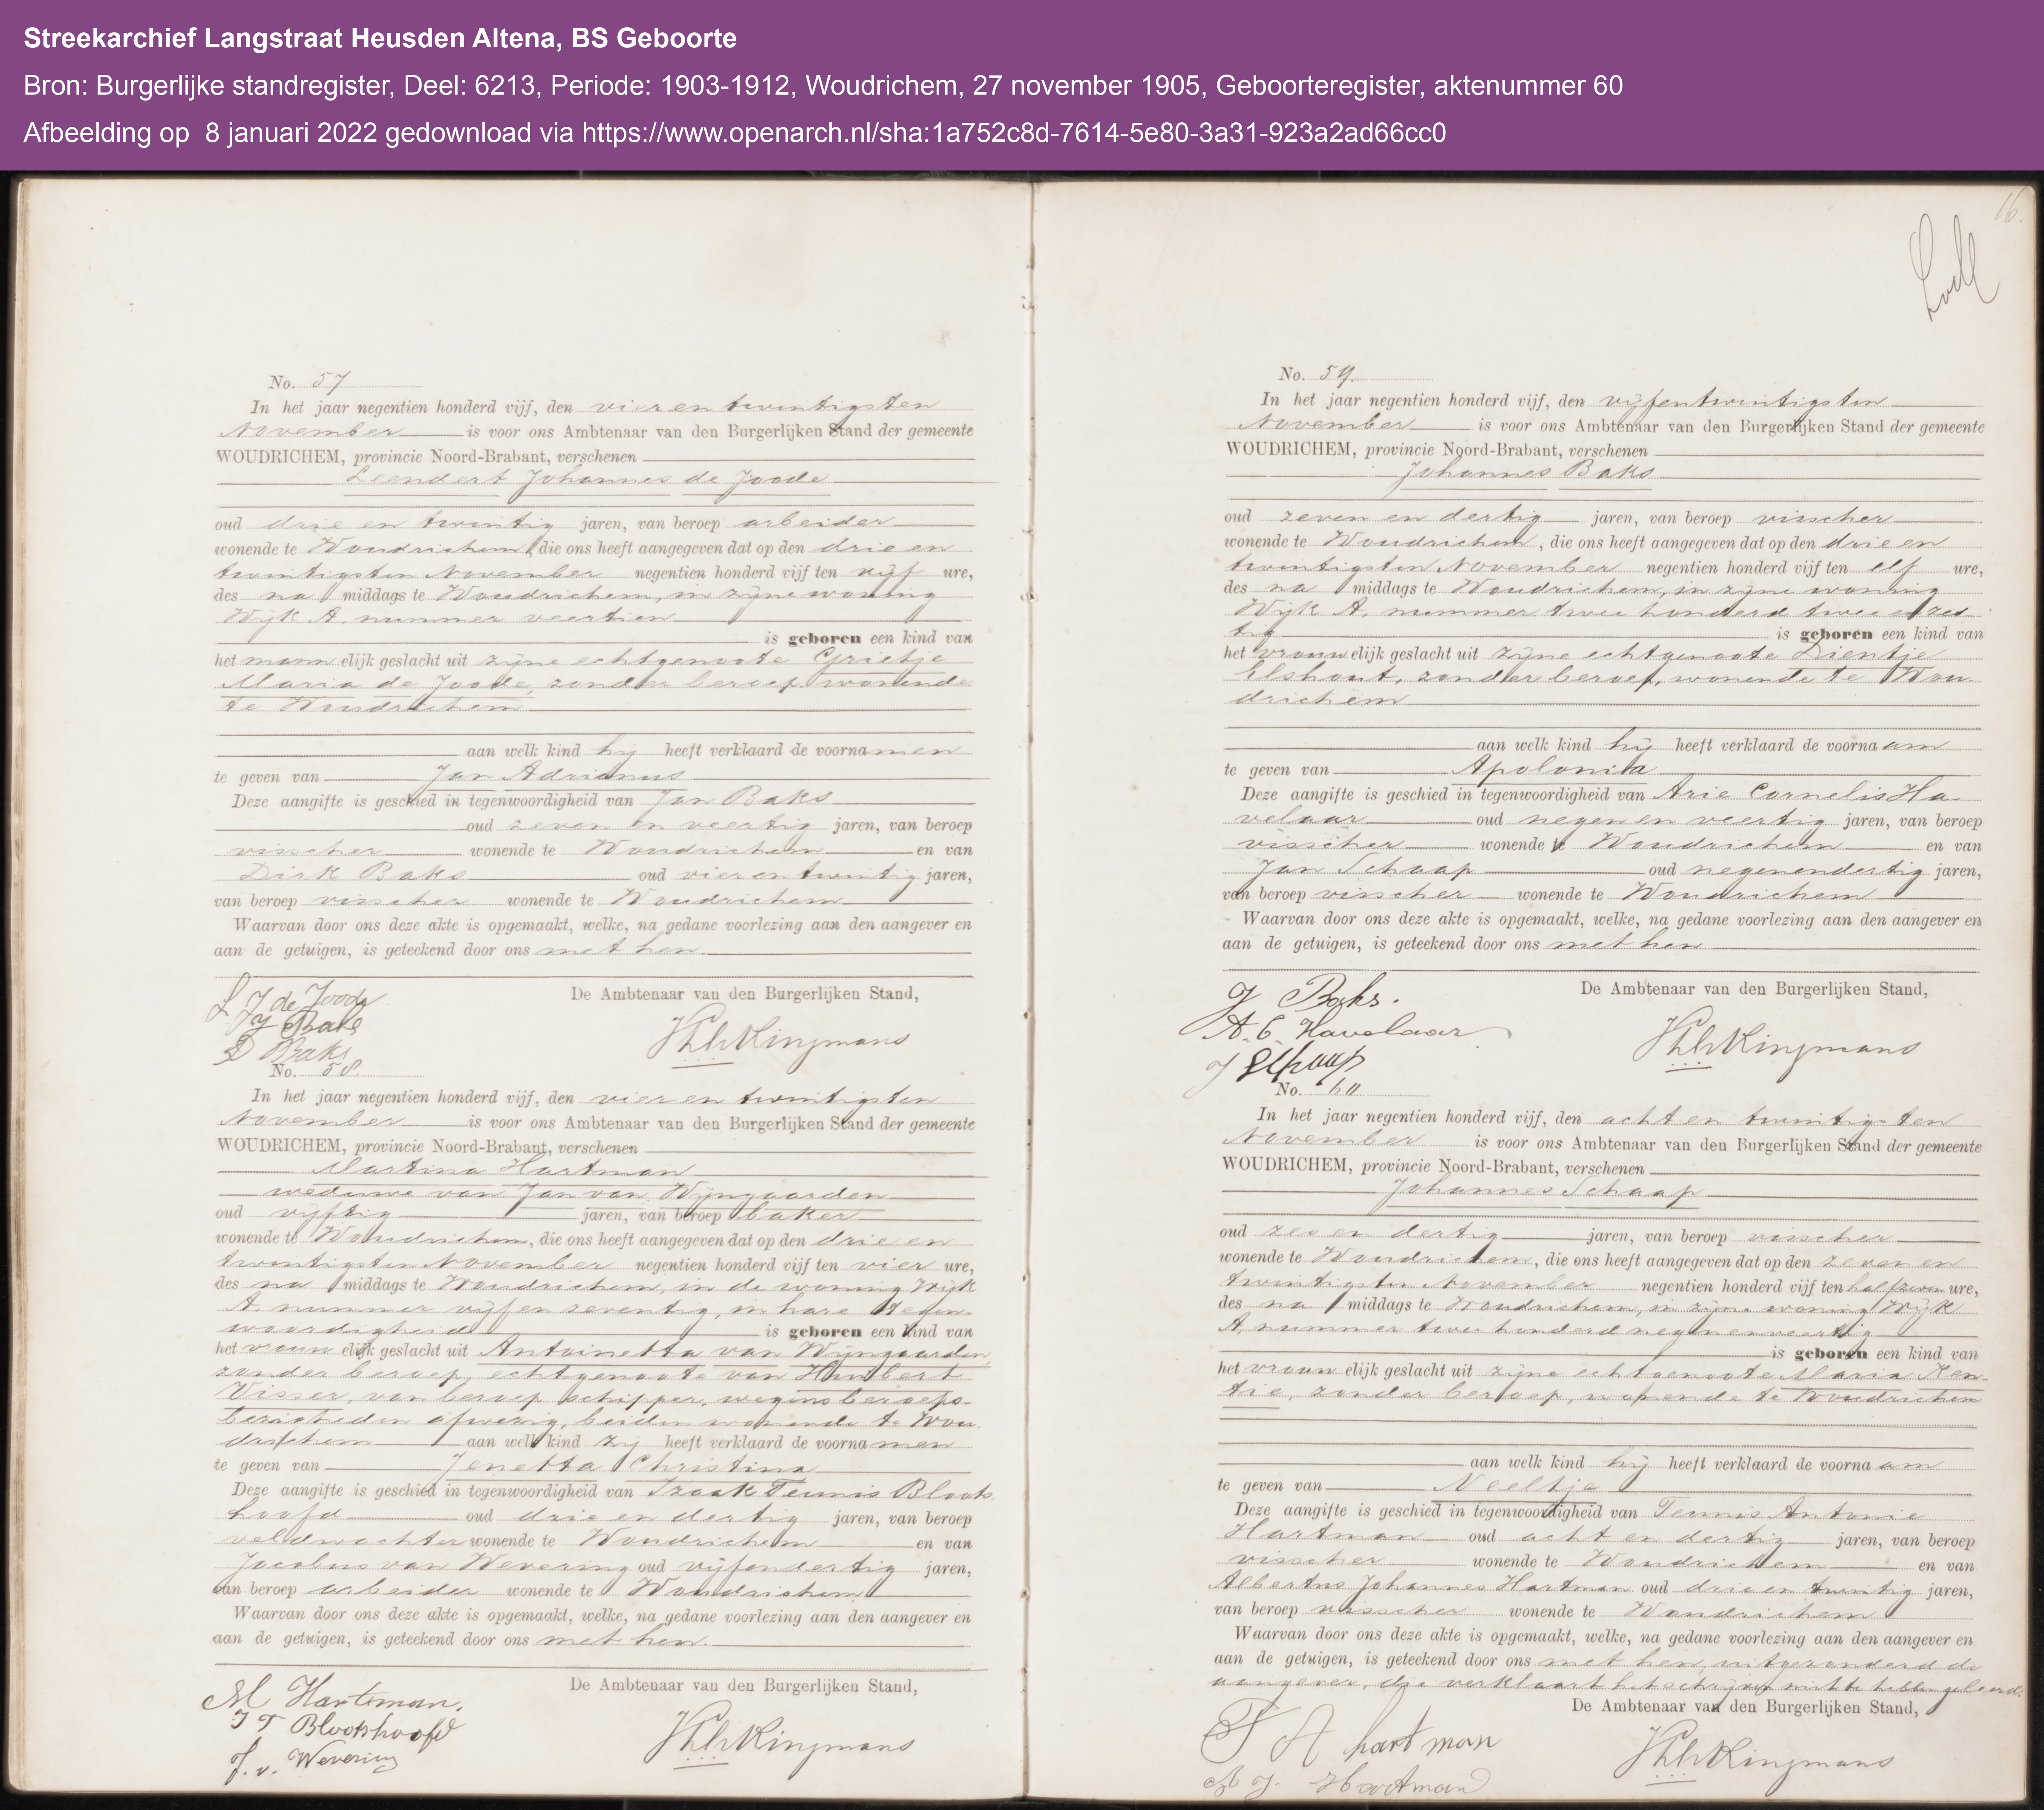 Streekarchief Langstraat Heusden Altena, BS Geboorte
Bron: Burgerlijke standregister, Deel: 6213, Periode: 1903-1912, Woudrichem, 27 november 1905, Geboorteregister, aktenummer 60
Afbeelding op 8 januari 2022 gedownload via https://www.openarch.nl/sha:1a752c8d-7614-5e80-3a31-923a2ad66cc0
No. 57
In het jaar negentien honderd vijf, den vier en twintigsten
November is voor ons Ambtenaar van den Burgerlijken Stand der gemeente
WOUDRICHEM, provincie Noord-Brabant, verschenen
Leendert Johannes de Joode
oud drie en twintig jaren, van beroep arbeider
wonende te Woudrichem, die ons heeft aangegeven dat op den drie en
twintigsten November negentien honderd vijf ten vijf ure,
des na middags te Woudrichem, in zijne woning
Wijk A. nummer veertien
is geboren een kind van
het mannelijk geslacht uit zijne echtgenoote Grietje
Maria de Joode, zonder beroep, wonende
te Woudrichem
aan welk kind hij heeft verklaard de voornamen
te geven van Jan Adrianus
Deze aangifte is geschied in tegenwoordigheid van Jan Baks
oud zeven en veertig jaren, van beroep
visscher wonende te Woudrichem en van
Dirk Baks oud vier en twintig jaren,
van beroep visscher wonende te Woudrichem
Waarvan door ons deze akte is opgemaakt, welke, na gedane voorlezing aan den aangever en
aan de getuigen, is geteekend door ons met hen.
De Ambtenaar van den Burgerlijken Stand,
L J de Joode
J Baks
D Baks
Kingmans
No. 58
In het jaar negentien honderd vijf, den vier en twintigsten
November is voor ons Ambtenaar van den Burgerlijken Stand der gemeente
WOUDRICHEM, provincie Noord-Brabant, verschenen
Martina Hartman
weduwe van Jan van Wijngaarden
oud vijftig jaren, van beroep baker
wonende te Woudrichem, die ons heeft aangegeven dat op den drie en
twintigsten November negentien honderd vijf ten vier ure,
des na middags te Woudrichem, in de woning Wijk
A. nummer vijf en zeventig, in hare tegen-
woordigheid is geboren een kind van
het vrouwelijk geslacht uit Antoinetta van Wijngaarden,
zonder beroep, echtgenoote van Humbert
Visser, van beroep schipper, wegens beroeps-
bezigheden afwezig, beiden wonende te Wou-
drichem aan welk kind zij heeft verklaard de voornamen
te geven van Jenetta Christina
Deze aangifte is geschied in tegenwoordigheid van Izaak Teunis Bloots-
hoofd oud drie en dertig jaren, van beroep
veldwachter wonende te Woudrichem en van
Jacobus van Wevering oud vijfendertig jaren,
van beroep arbeider wonende te Woudrichem
Waarvan door ons deze akte is opgemaakt, welke, na gedane voorlezing aan den aangever en
aan de getuigen, is geteekend door ons met hen.
De Ambtenaar van den Burgerlijken Stand,
M Hartman.
I T Blootshoofd
J. v. Wevering
Kingmans
16.
No. 59.
In het jaar negentien honderd vijf, den vijfentwintigsten
November is voor ons Ambtenaar van den Burgerlijken Stand der gemeente
WOUDRICHEM, provincie Noord-Brabant, verschenen
Johannes Baks
oud zeven en dertig jaren, van beroep visscher
wonende te Woudrichem, die ons heeft aangegeven dat op den drie en
twintigsten November negentien honderd vijf ten elf ure,
des na middags te Woudrichem, in zijne woning
Wijk A. nummer twee honderd twee en zes-
tig is geboren een kind van
het vrouwelijk geslacht uit zijne echtgenoote Dientje
Elshout, zonder beroep, wonende te Wou-
drichem
aan welk kind hij heeft verklaard de voornaam
te geven van Apolonia
Deze aangifte is geschied in tegenwoordigheid van Arie Cornelis Ha-
velaar oud negen en veertig jaren, van beroep
visscher wonende te Woudrichem en van
Jan Schaap oud negenendertig jaren,
van beroep visscher wonende te Woudrichem
Waarvan door ons deze akte is opgemaakt, welke, na gedane voorlezing aan den aangever en
aan de getuigen, is geteekend door ons met hen
De Ambtenaar van den Burgerlijken Stand,
J Baks.
A. C. Havelaar
J Schaap
Kingmans
No. 60
In het jaar negentien honderd vijf, den acht en twintigsten
November is voor ons Ambtenaar van den Burgerlijken Stand der gemeente
WOUDRICHEM, provincie Noord-Brabant, verschenen
Johannes Schaap
oud zes en dertig jaren, van beroep visscher
wonende te Woudrichem, die ons heeft aangegeven dat op den zeven en
twintigsten November negentien honderd vijf ten half zeven ure,
des na middags te Woudrichem, in zijne woning Wijk
A, nummer twee honderd negenenveertig
is geboren een kind van
het vrouwelijk geslacht uit zijne echtgenoote Maria Ken-
tie, zonder beroep, wonende te Woudrichem
aan welk kind hij heeft verklaard de voornaam
te geven van Neeltje
Deze aangifte is geschied in tegenwoordigheid van Teunis Antonie
Hartman oud acht en dertig jaren, van beroep
visscher wonende te Woudrichem en van
Albertus Johannes Hartman oud drie en twintig jaren,
van beroep visscher wonende te Woudrichem
Waarvan door ons deze akte is opgemaakt, welke, na gedane voorlezing aan den aangever en
aan de getuigen, is geteekend door ons met hen, uitgezonderd de
aangever, die verklaart het schrijven niet te hebben geleerd.
De Ambtenaar van den Burgerlijken Stand,
T A hartman
A J. Hartman
Kingmans